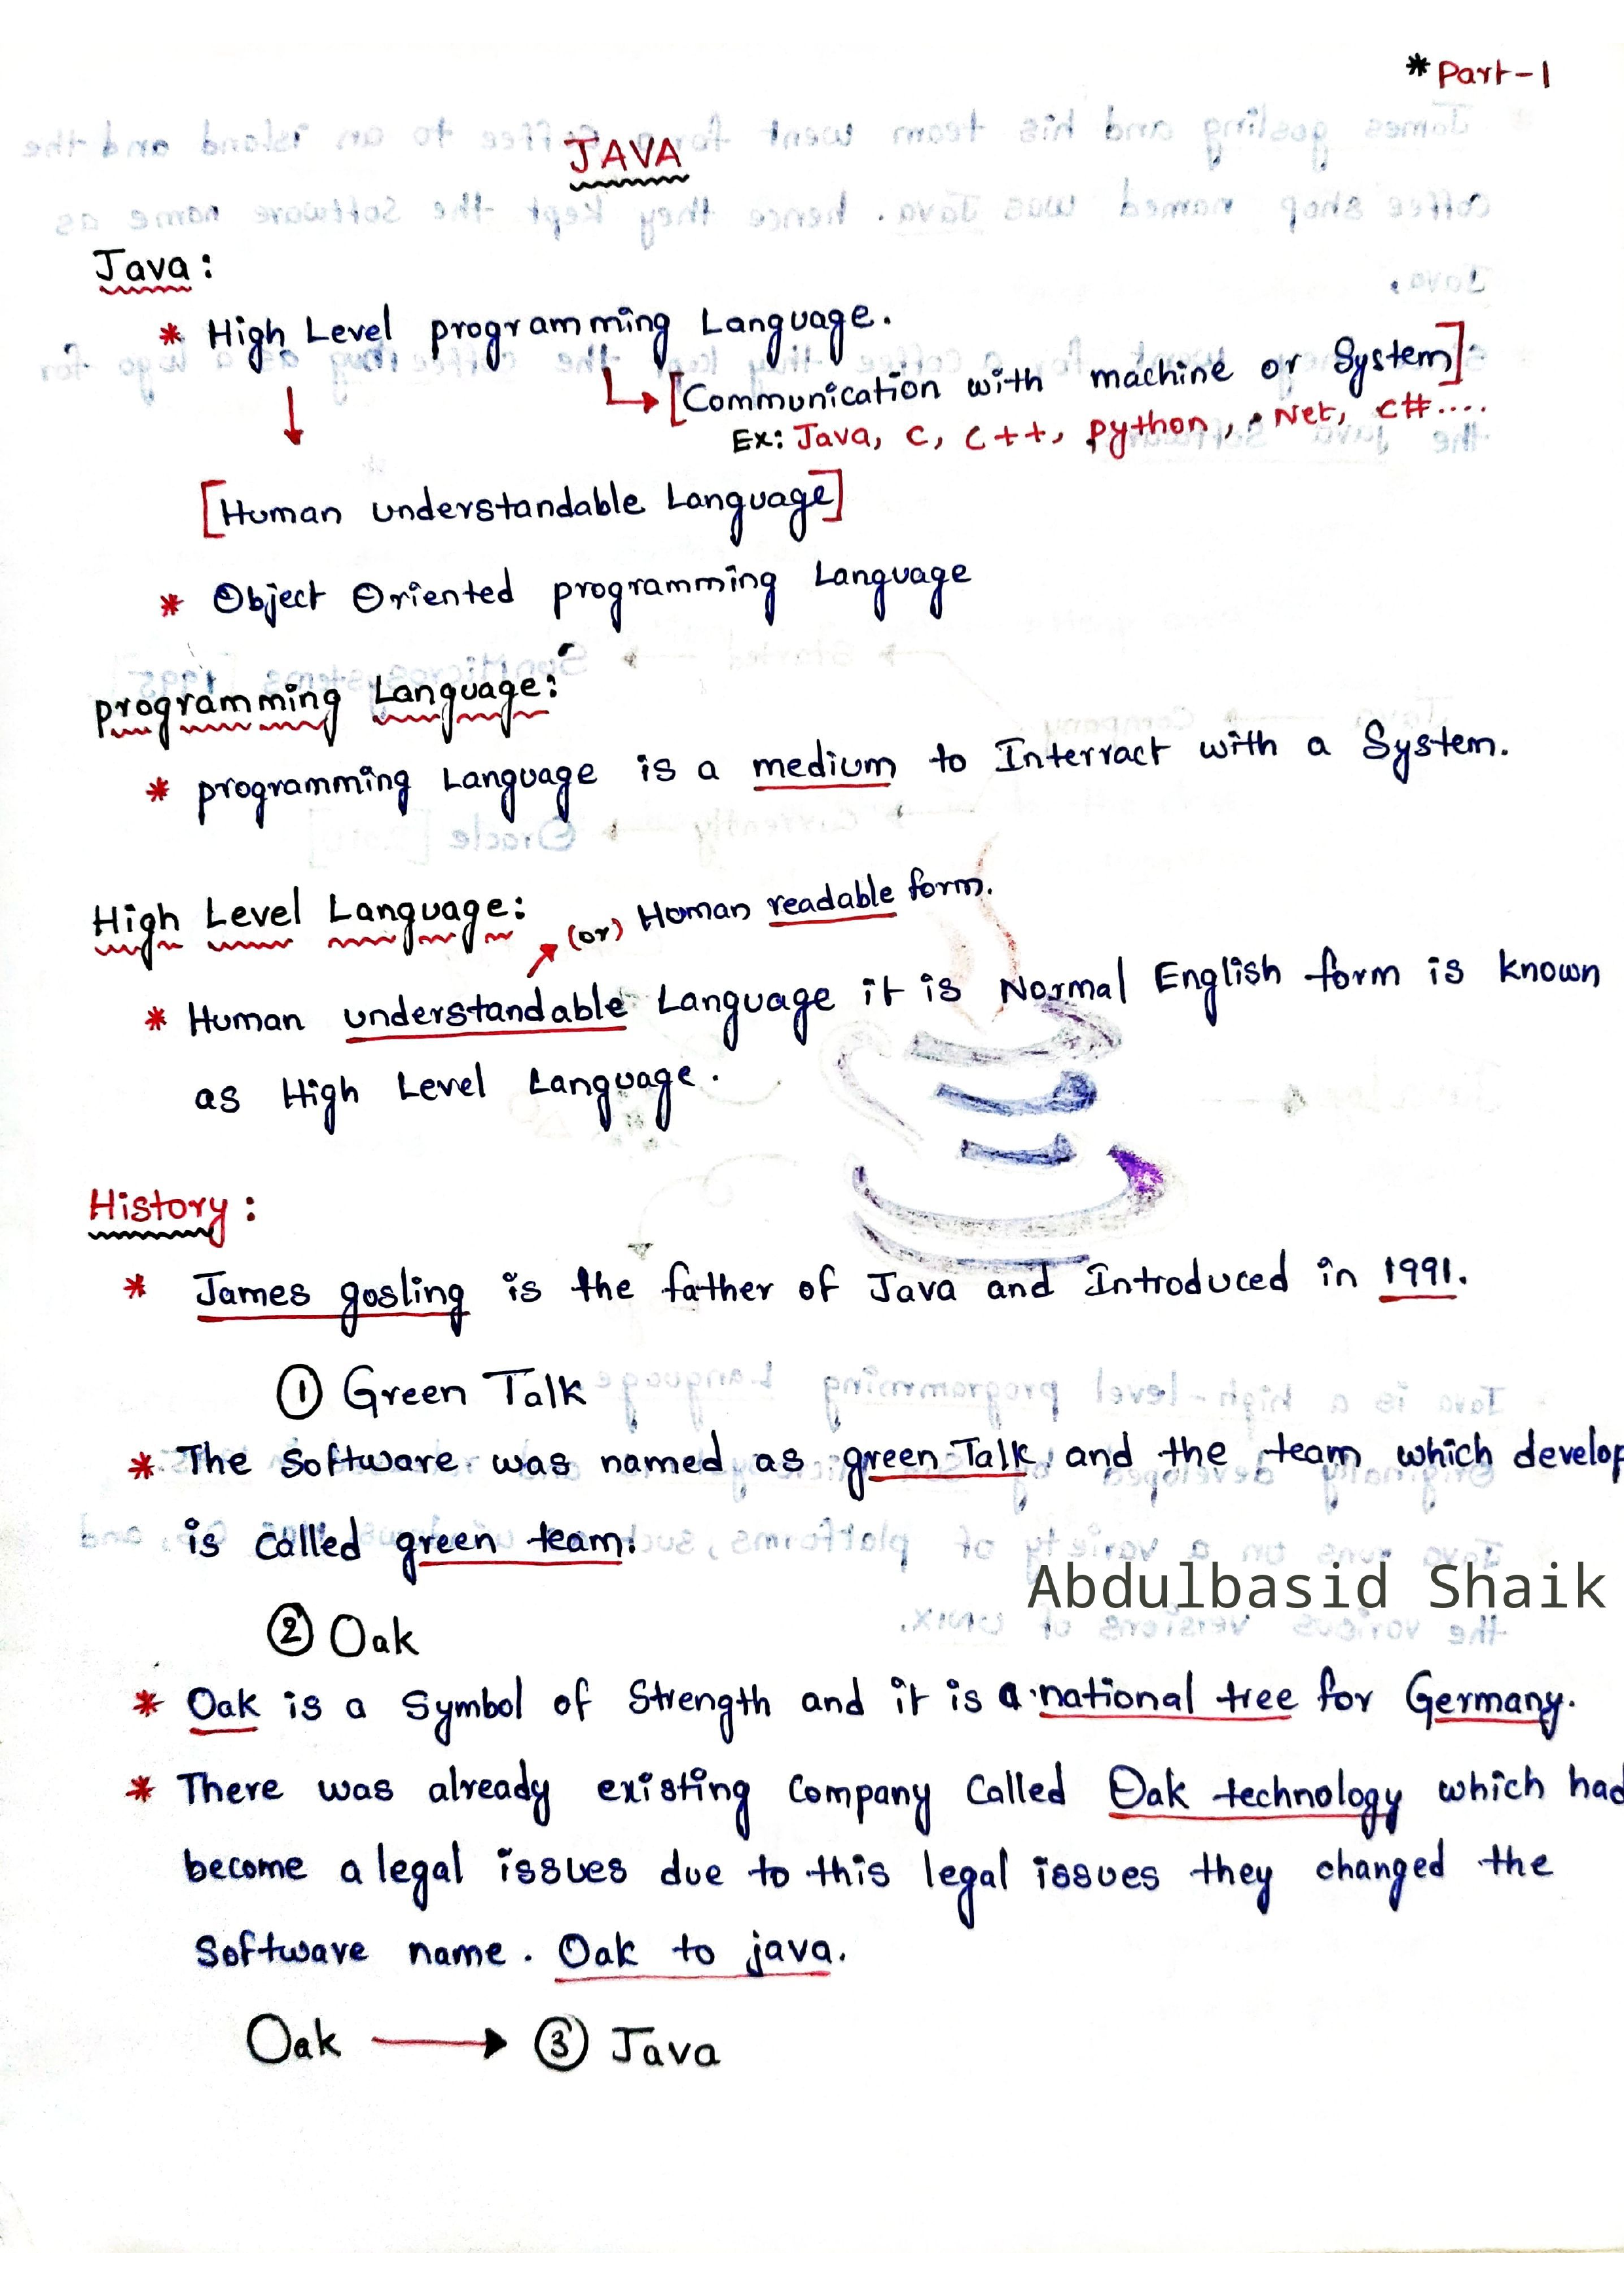 * Part-1
JAVA
Java:
* High Level programming Language.
[Communication with machine or System].
Ex: Java, C, C++, python, .Net, C#....
[Human understandable Language]
* Object Oriented programming Language
programming Language:
* programming Language is a medium to Interract with a System.
High Level Language:
(or) Human readable form.
* Human understandable Language it is Normal English form is known
as High Level Language.
History:
* James gosling is the father of Java and Introduced in 1991.
① Green Talk
* The Software was named as green Talk and the team which develop
is called green team.
Abdulbasid Shaik
② Oak
* Oak is a Symbol of Strength and it is a national tree for Germany.
* There was already existing Company Called Oak technology which had
become a legal issues due to this legal issues they changed the
Software name. Oak to java.
Oak → ③ Java